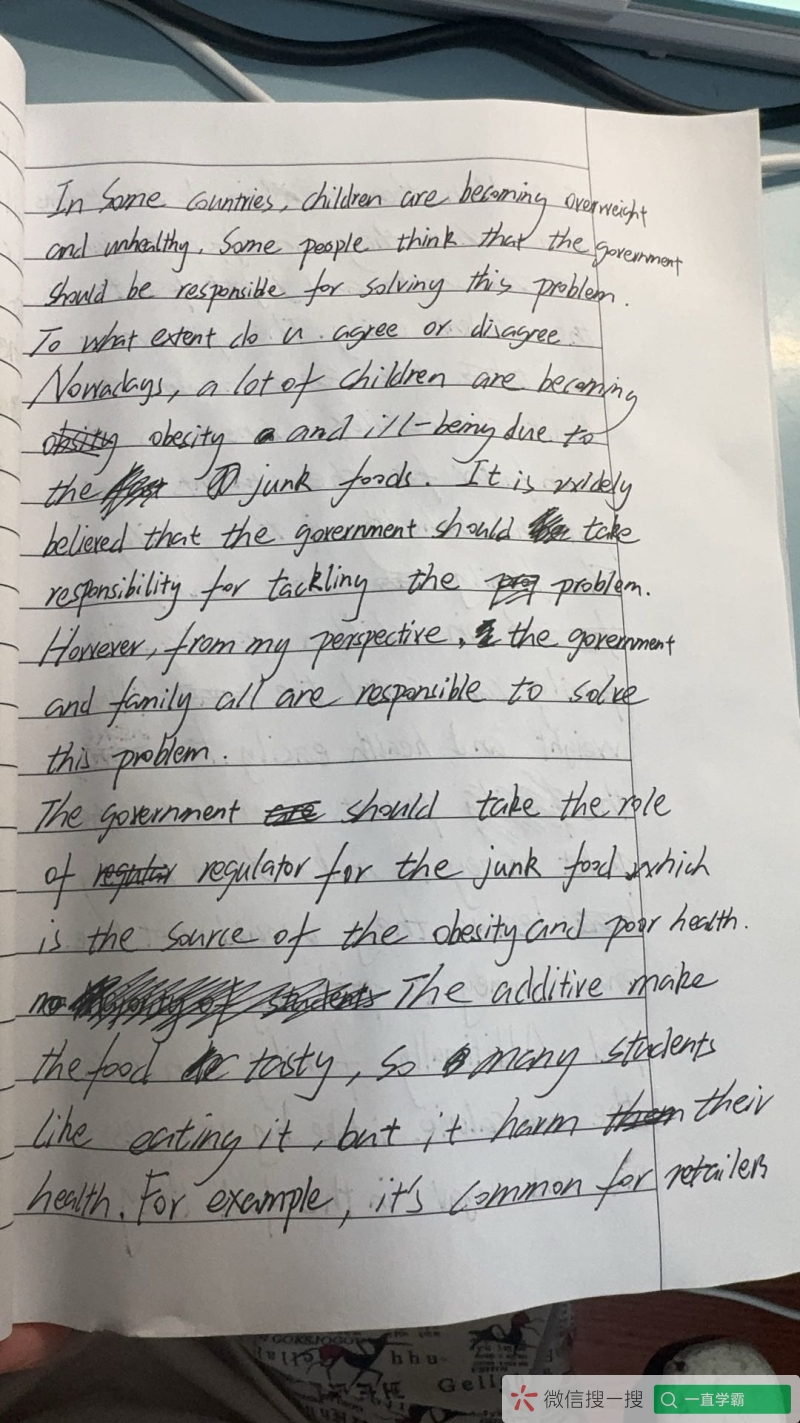 In Some countries, children are becoming overweight
and unhealthy. Some people think that the government
should be responsible for solving this problem.
To what extent do u agree or disagree.
Nowadays, a lot of children are becoming
obesity and ill-being due to
the junk foods. It is widely
believed that the government should take
responsibility for tackling the problem.
However, from my perspective, the government
and family all are responsible to solve
this problem.
The government should take the role
of regulator for the junk food which
is the source of the obesity and poor health.
The additive make
the food tasty, so many students
like eating it, but it harm their
health. For example, it's common for retailers
Gell
微信搜一搜
一直学霸